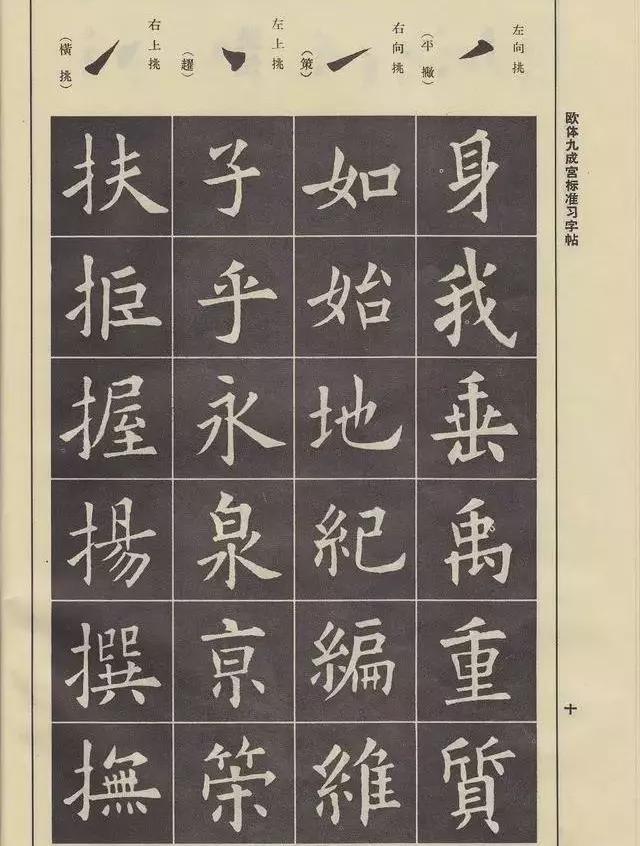 欧体九成宫标准习字帖
十
左向挑
（平撇）
身我垂禹重質
右向挑
（策）
如始地紀編維
左上挑
（趯）
子乎永泉亰策
右上挑
（橫挑）
扶拒握揚撰撫